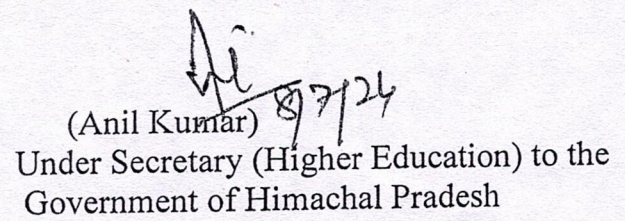 8/7/24
(Anil Kumar)
Under Secretary (Higher Education) to the
Government of Himachal Pradesh